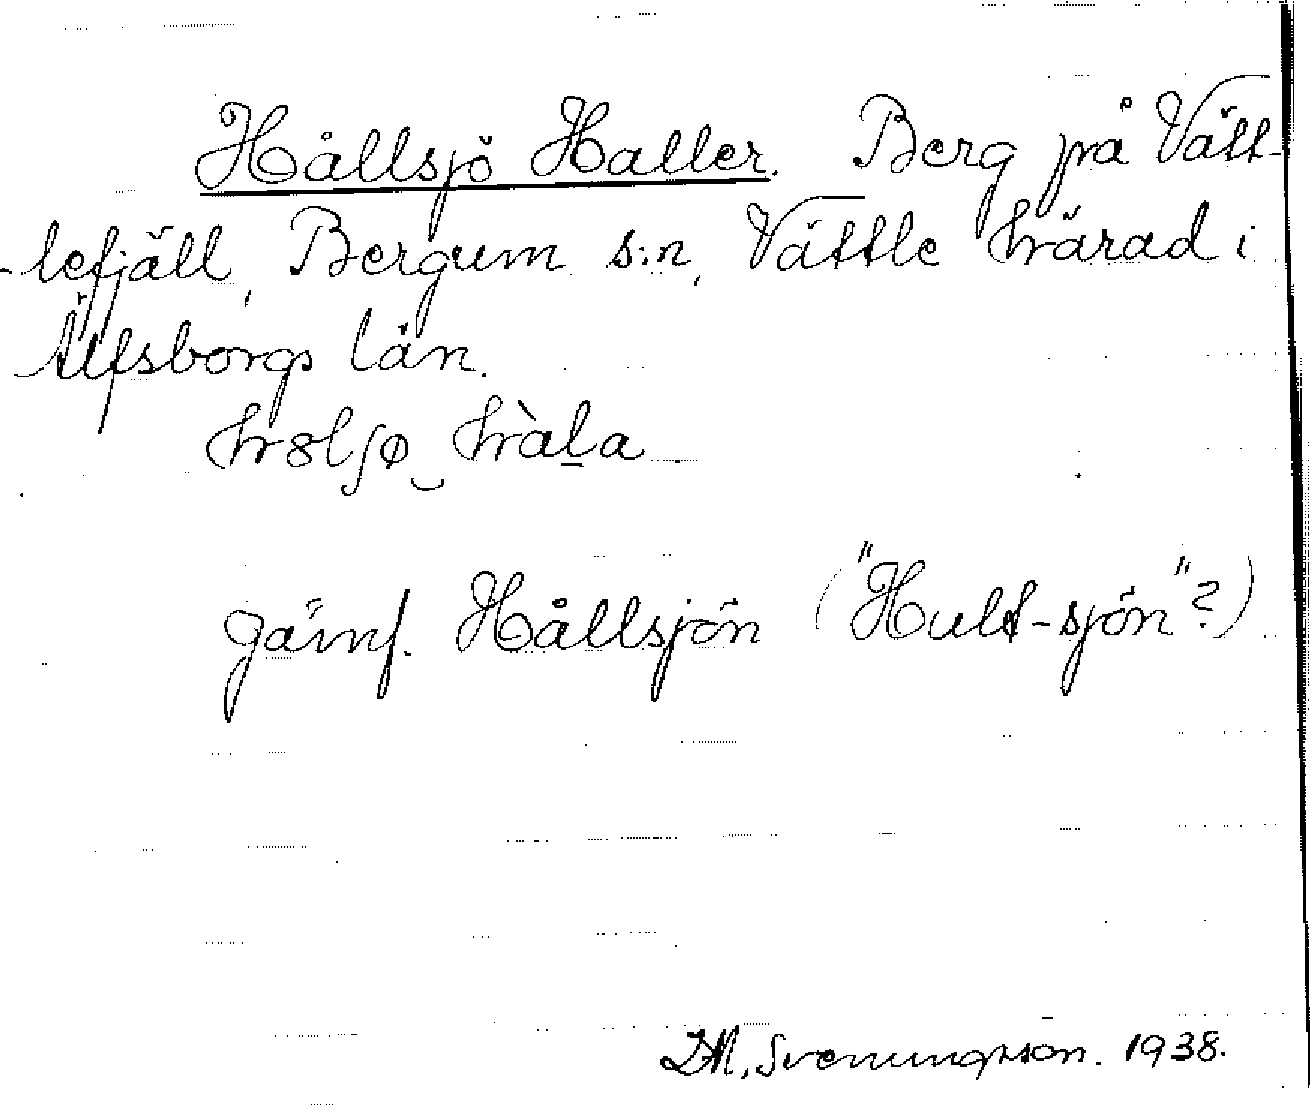 Hållsjö Haller. Berg på Vätt-
-lefjäll, Bergum s:n, Vättle härad i
Älfsborgs län.
h8lʃø‿hàḻa
Jämf. Hållsjön ("Hult-sjön"?)
Svenungsson. 1938.